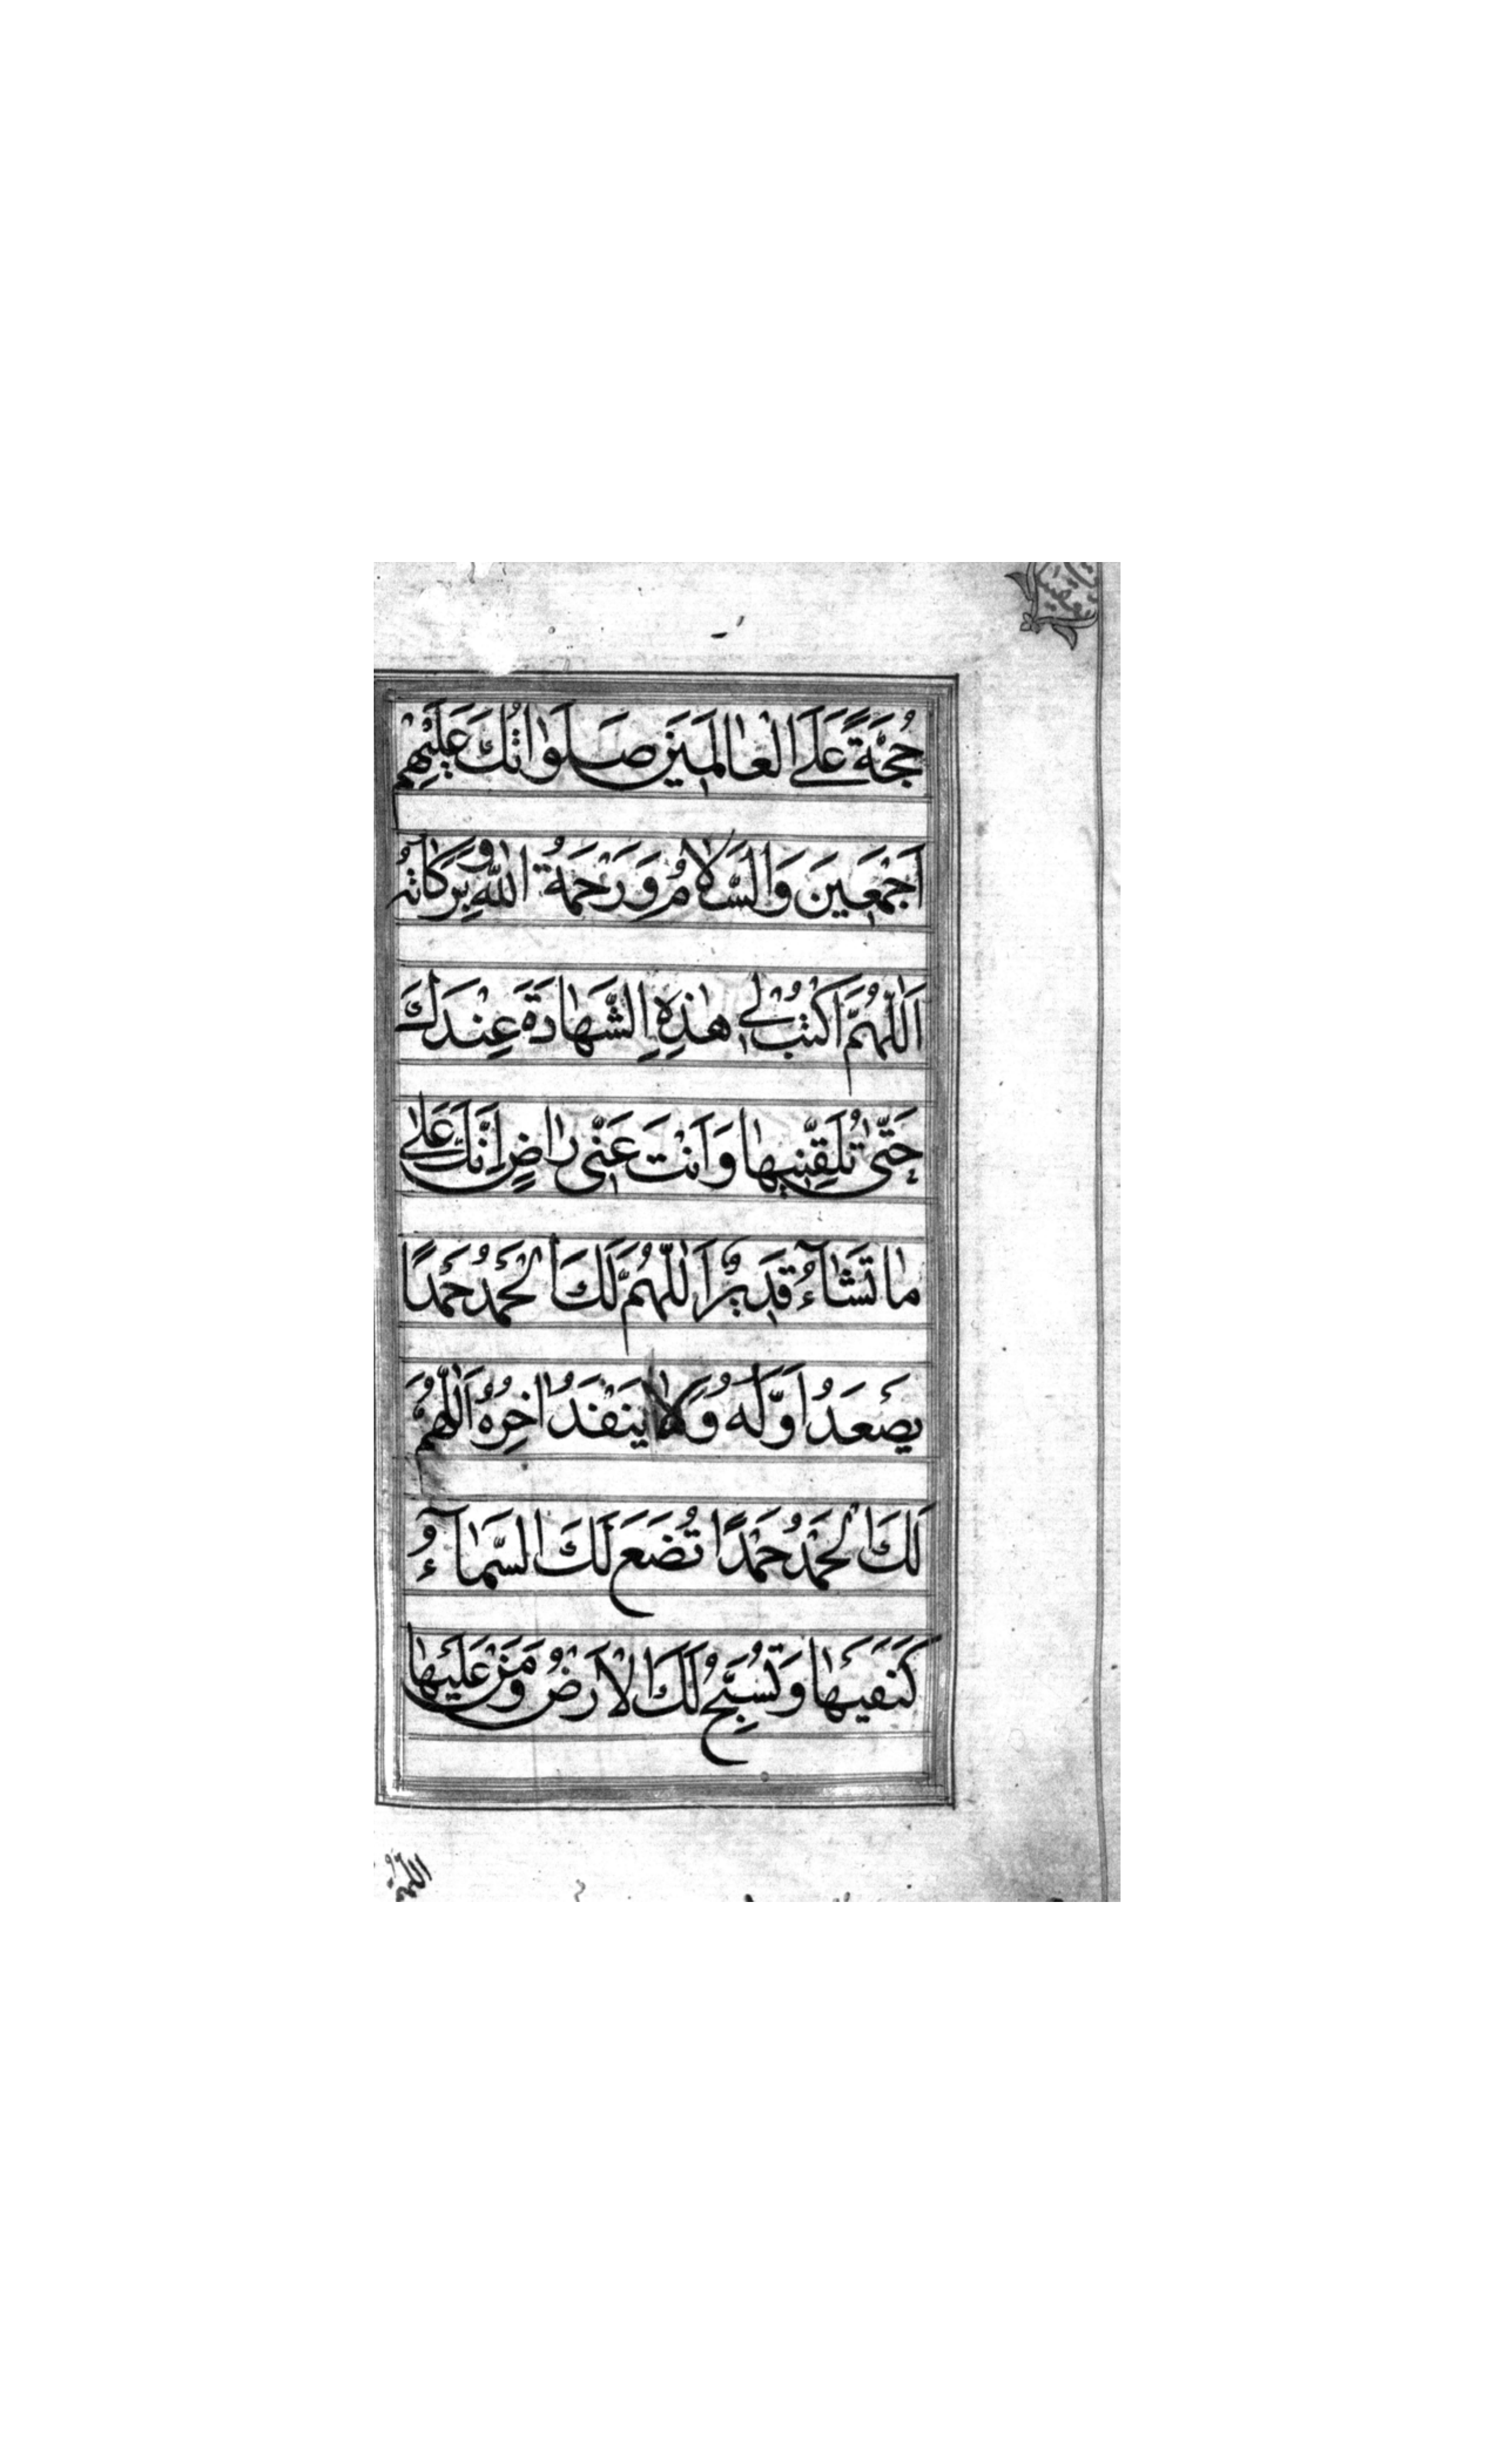 حُجَّةً عَلَى الْعٰالَمِينَ صَلَوٰاتُكَ عَلَيْهِمْ
اَجْمَعِينَ وَالسَّلٰامُ وَرَحْمَةُ اللّٰهِ وَبَرَكٰاتُهُ
اَللّٰهُمَّ اكْتُبْ لِي هٰذِهِ الشَّهٰادَةَ عِنْدَكَ
حَتّٰى تُلَقِّنِيهٰا وَاَنْتَ عَنّي رٰاضٍ اِنَّكَ عَلٰى
مٰا تَشٰآءُ قَدِيرٌ اَللّٰهُمَّ لَكَ الْحَمْدُ حَمْدًا
يَصْعَدُ اَوَّلُهُ وَلٰا يَنْفَدُ اٰخِرُهُ اَللّٰهُمَّ
لَكَ الْحَمْدُ حَمْدًا تَضَعُ لَكَ السَّمٰآءُ
كَنَفَيْهٰا وَتُسَبِّحُ لَكَ الْاَرْضُ وَمَنْ عَلَيْهٰا